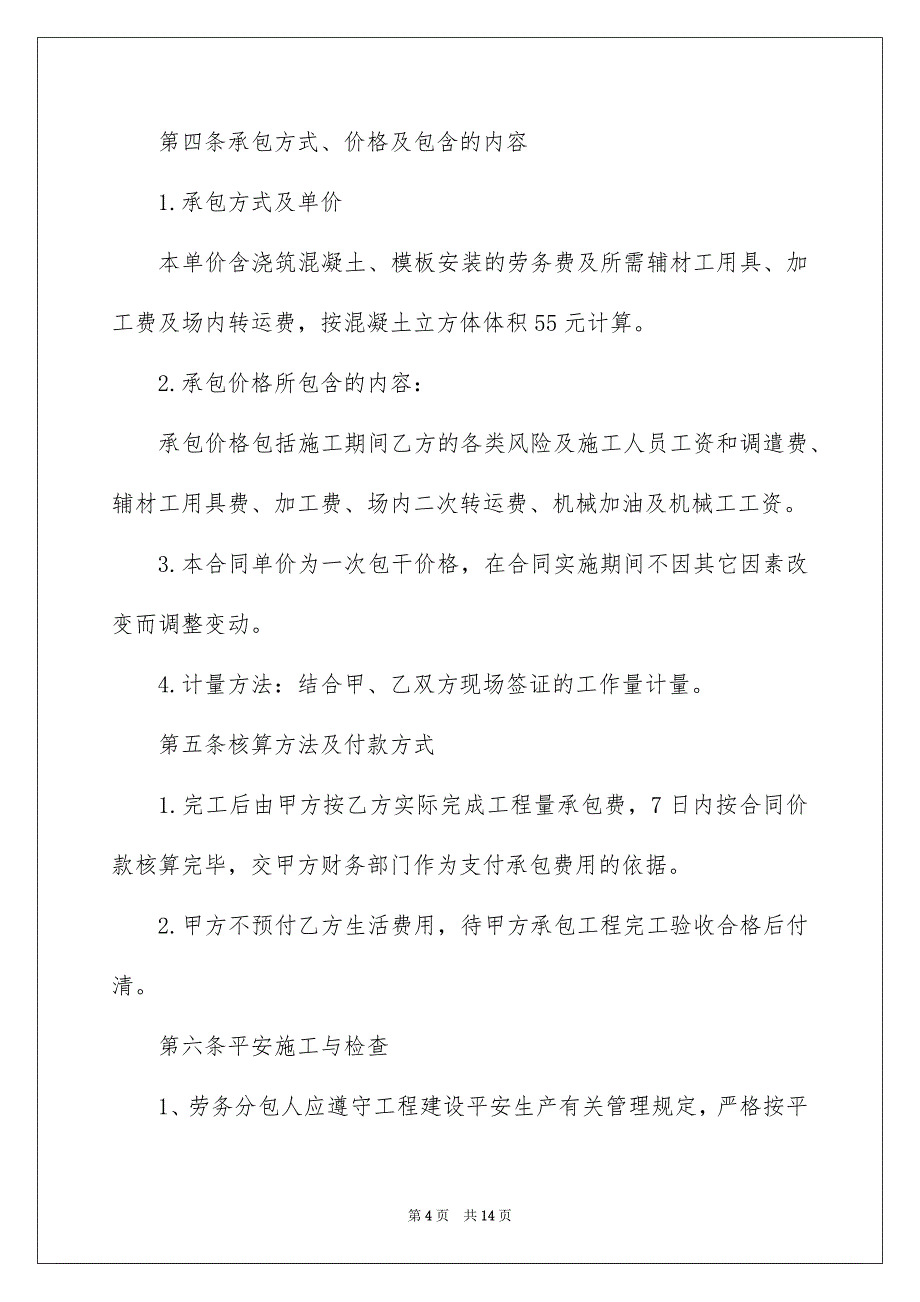 第四条承包方式、价格及包含的内容
1.承包方式及单价
本单价含浇筑混凝土、模板安装的劳务费及所需辅材工用具、加
工费及场内转运费，按混凝土立方体体积 55 元计算。
2.承包价格所包含的内容：
承包价格包括施工期间乙方的各类风险及施工人员工资和调遣费、
辅材工用具费、加工费、场内二次转运费、机械加油及机械工工资。
3.本合同单价为一次包干价格，在合同实施期间不因其它因素改
变而调整变动。
4.计量方法：结合甲、乙双方现场签证的工作量计量。
第五条核算方法及付款方式
1.完工后由甲方按乙方实际完成工程量承包费，7 日内按合同价
款核算完毕，交甲方财务部门作为支付承包费用的依据。
2.甲方不预付乙方生活费用，待甲方承包工程完工验收合格后付
清。
第六条平安施工与检查
1、劳务分包人应遵守工程建设平安生产有关管理规定，严格按平
第 4 页 共 14 页